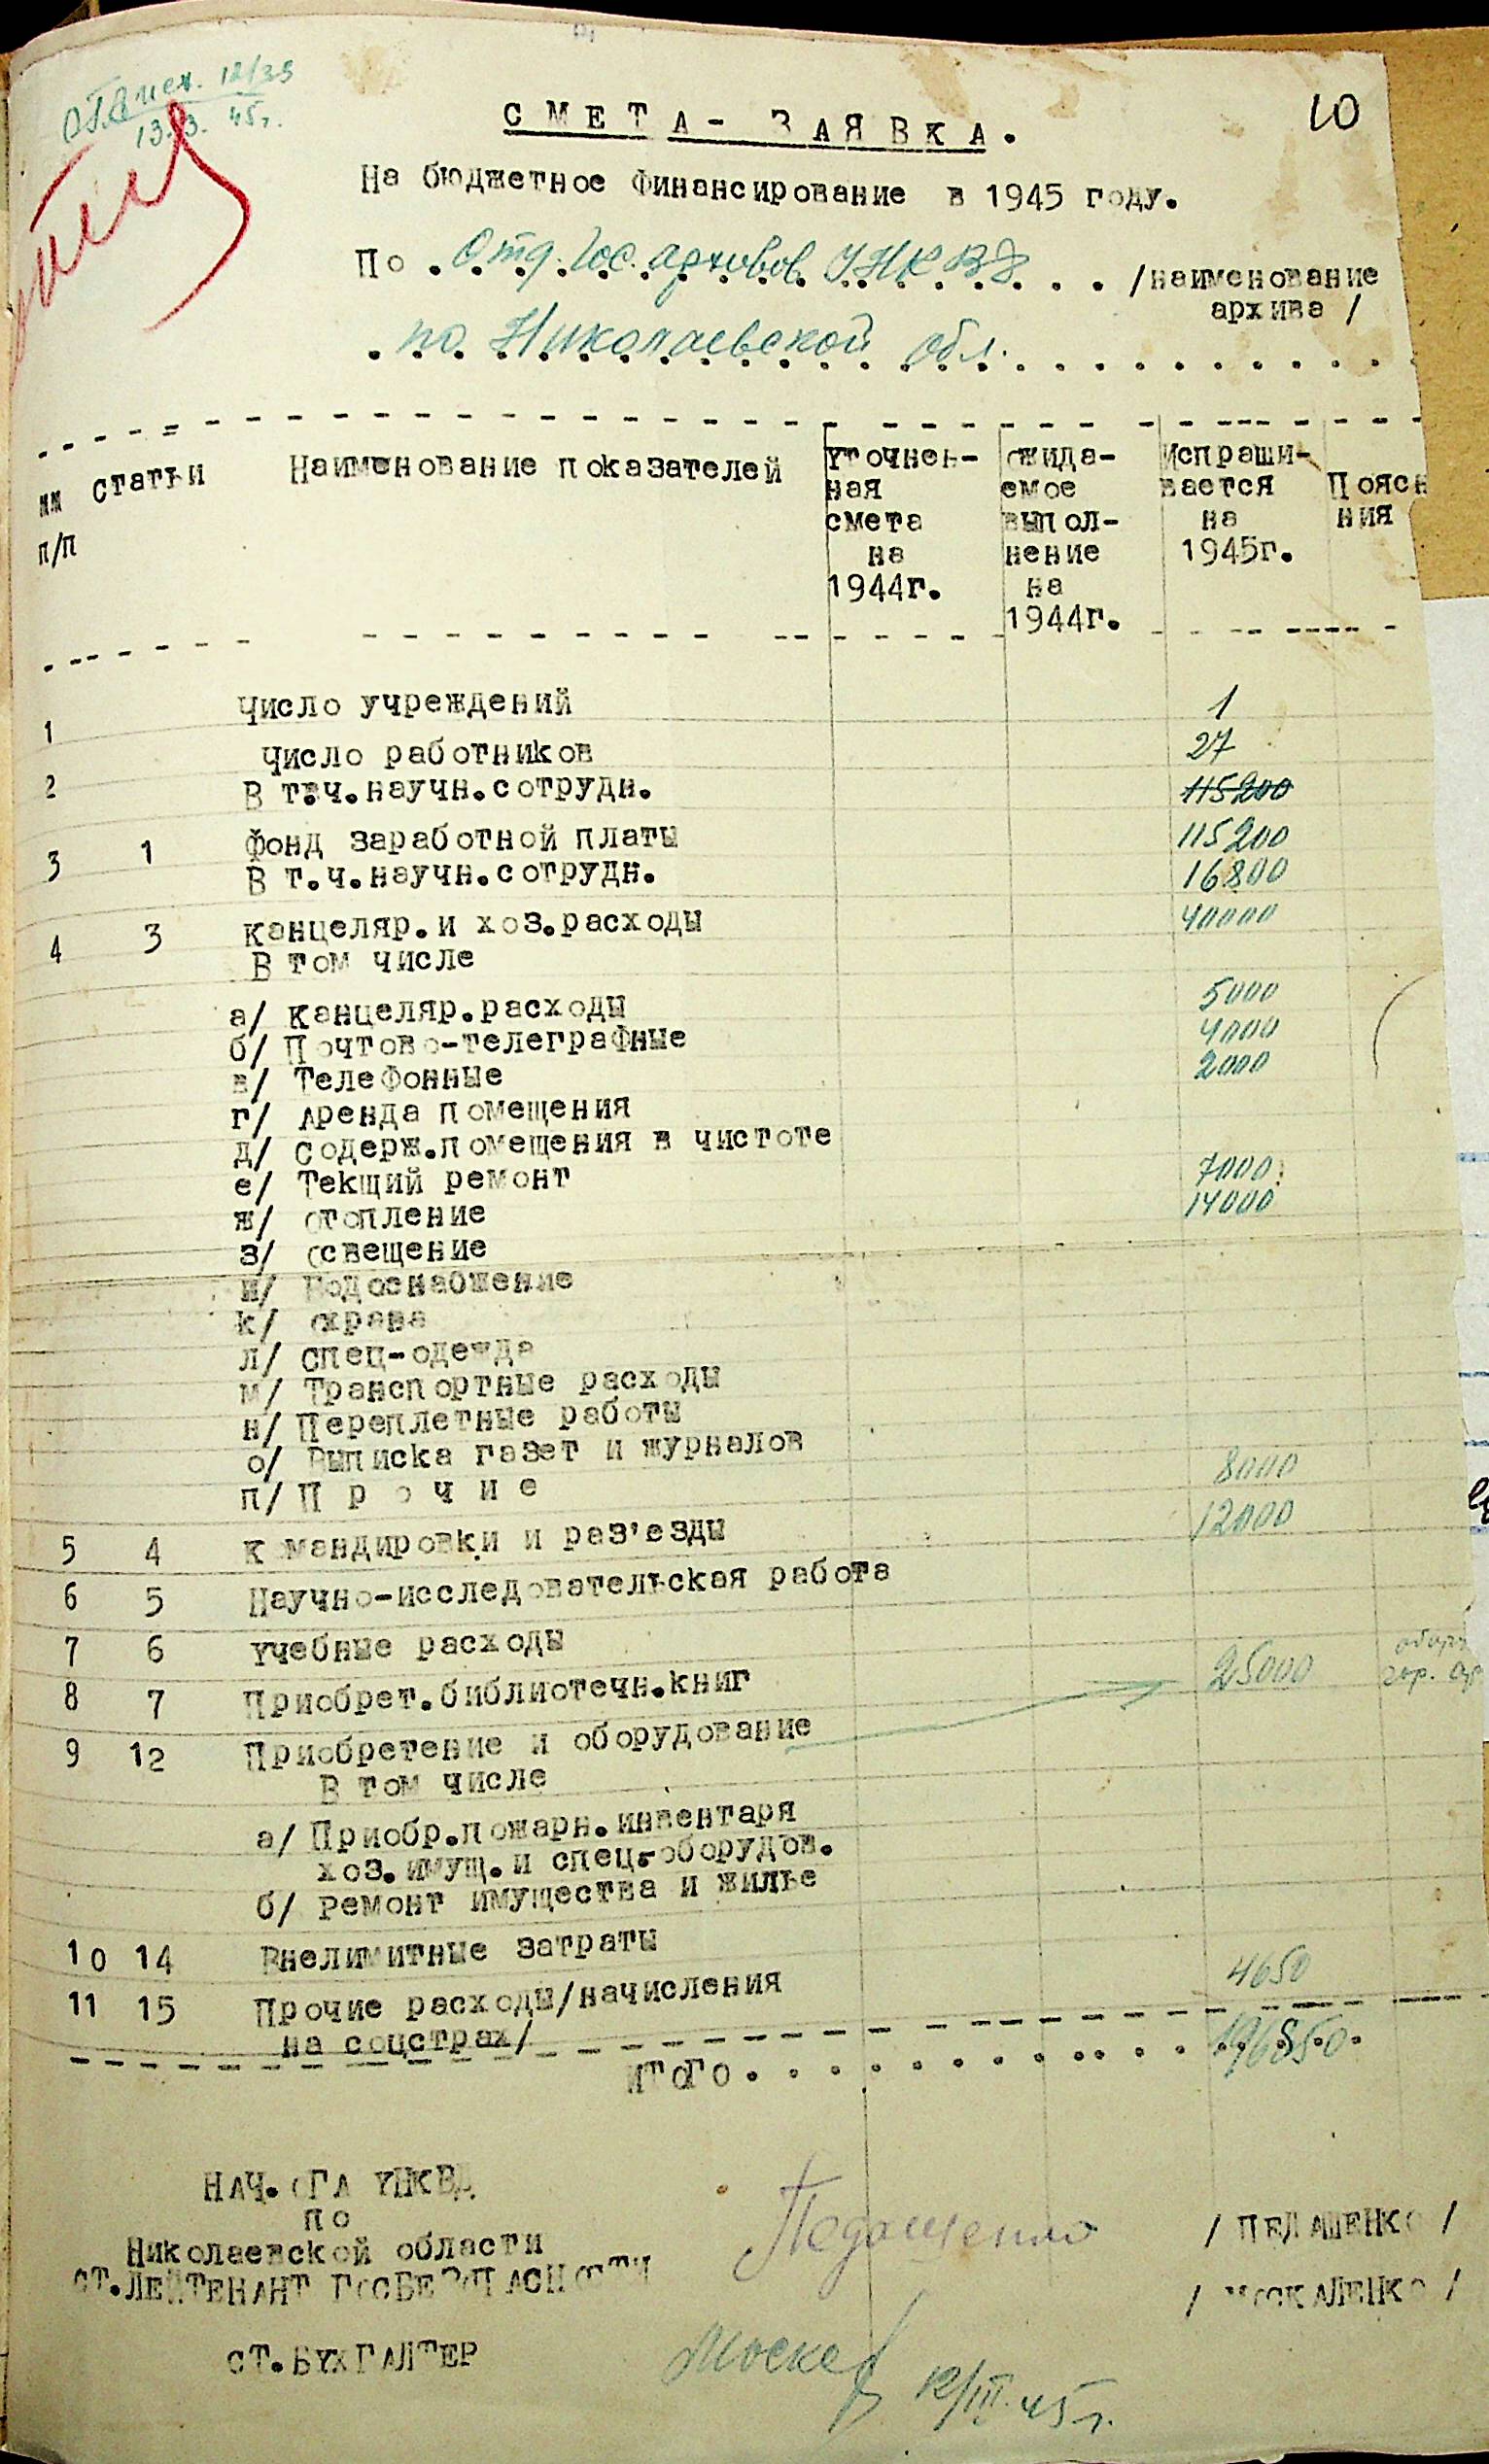 12/35
13.3. 45г.
10
СМЕТА- ЗАЯВКА.
На бюджетное финансирование в 1945 году.
По . Отд. Гос. архивов УНКВД . . /наименование
архива /
. по Николаевской обл. . . . . . . . . . .
№№ статьи Наименование показателей Уточнен- Ожида- Испраши- Поясн
п/п ная емое вается ния
смета выпол- на
на нение 1945г.
1944г. на
1944г.
1 Число учреждений 1
2 Число работников 27
В т.ч.научн.сотрудн. 115200
3 1 Фонд заработной платы 115200
В т.ч.научн.сотрудн. 16800
4 3 Канцеляр.и хоз.расходы 40000
В том числе
а/ Канцеляр.расходы 5000
б/ Почтово-телеграфные 4000
в/ Телефонные 2000
г/ Аренда помещения
д/ Содерж.помещения в чистоте
е/ Текщий ремонт 7000
ж/ Отопление 14000
з/ Освещение
и/ Водоснабжение
к/ Охрана
л/ Спец-одежда
м/ Транспортные расходы
н/ Переплетные работы
о/ Выписка газет и журналов
п/ П р о ч и е 8000
5 4 Командировки и раз'езды 12000
6 5 Научно-исследовательская работа
7 6 Учебные расходы
8 7 Приобрет.библиотечн.книг 25000
9 12 Приобретение и оборудование
В том числе
а/ Приобр.пожарн.инвентаря
хоз.имущ.и спец-оборудов.
б/ Ремонт имущества и жилье
10 14 Внелимитные затраты
11 15 Прочие расходы/начисления 4650
на соцстрах/
ИТОГО. . . . . . . . . . . . 196850
НАЧ.ОГА УНКВД
по
Николаевской области Педашенко / ПЕДАШЕНКО /
СТ.ЛЕЙТЕНАНТ ГОСБЕЗОПАСНОСТИ
/ МОСКАЛЕНКО /
СТ.БУХГАЛТЕР
12/III 45г.